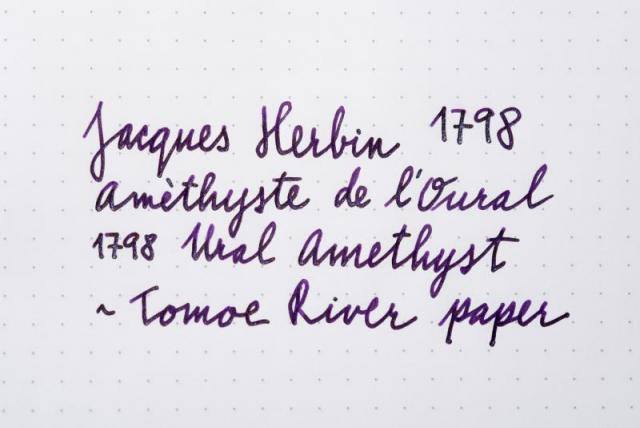 Jacques Herbin 1798
améthyste de l'Oural
1798 Ural Amethyst
~ Tomoe River paper